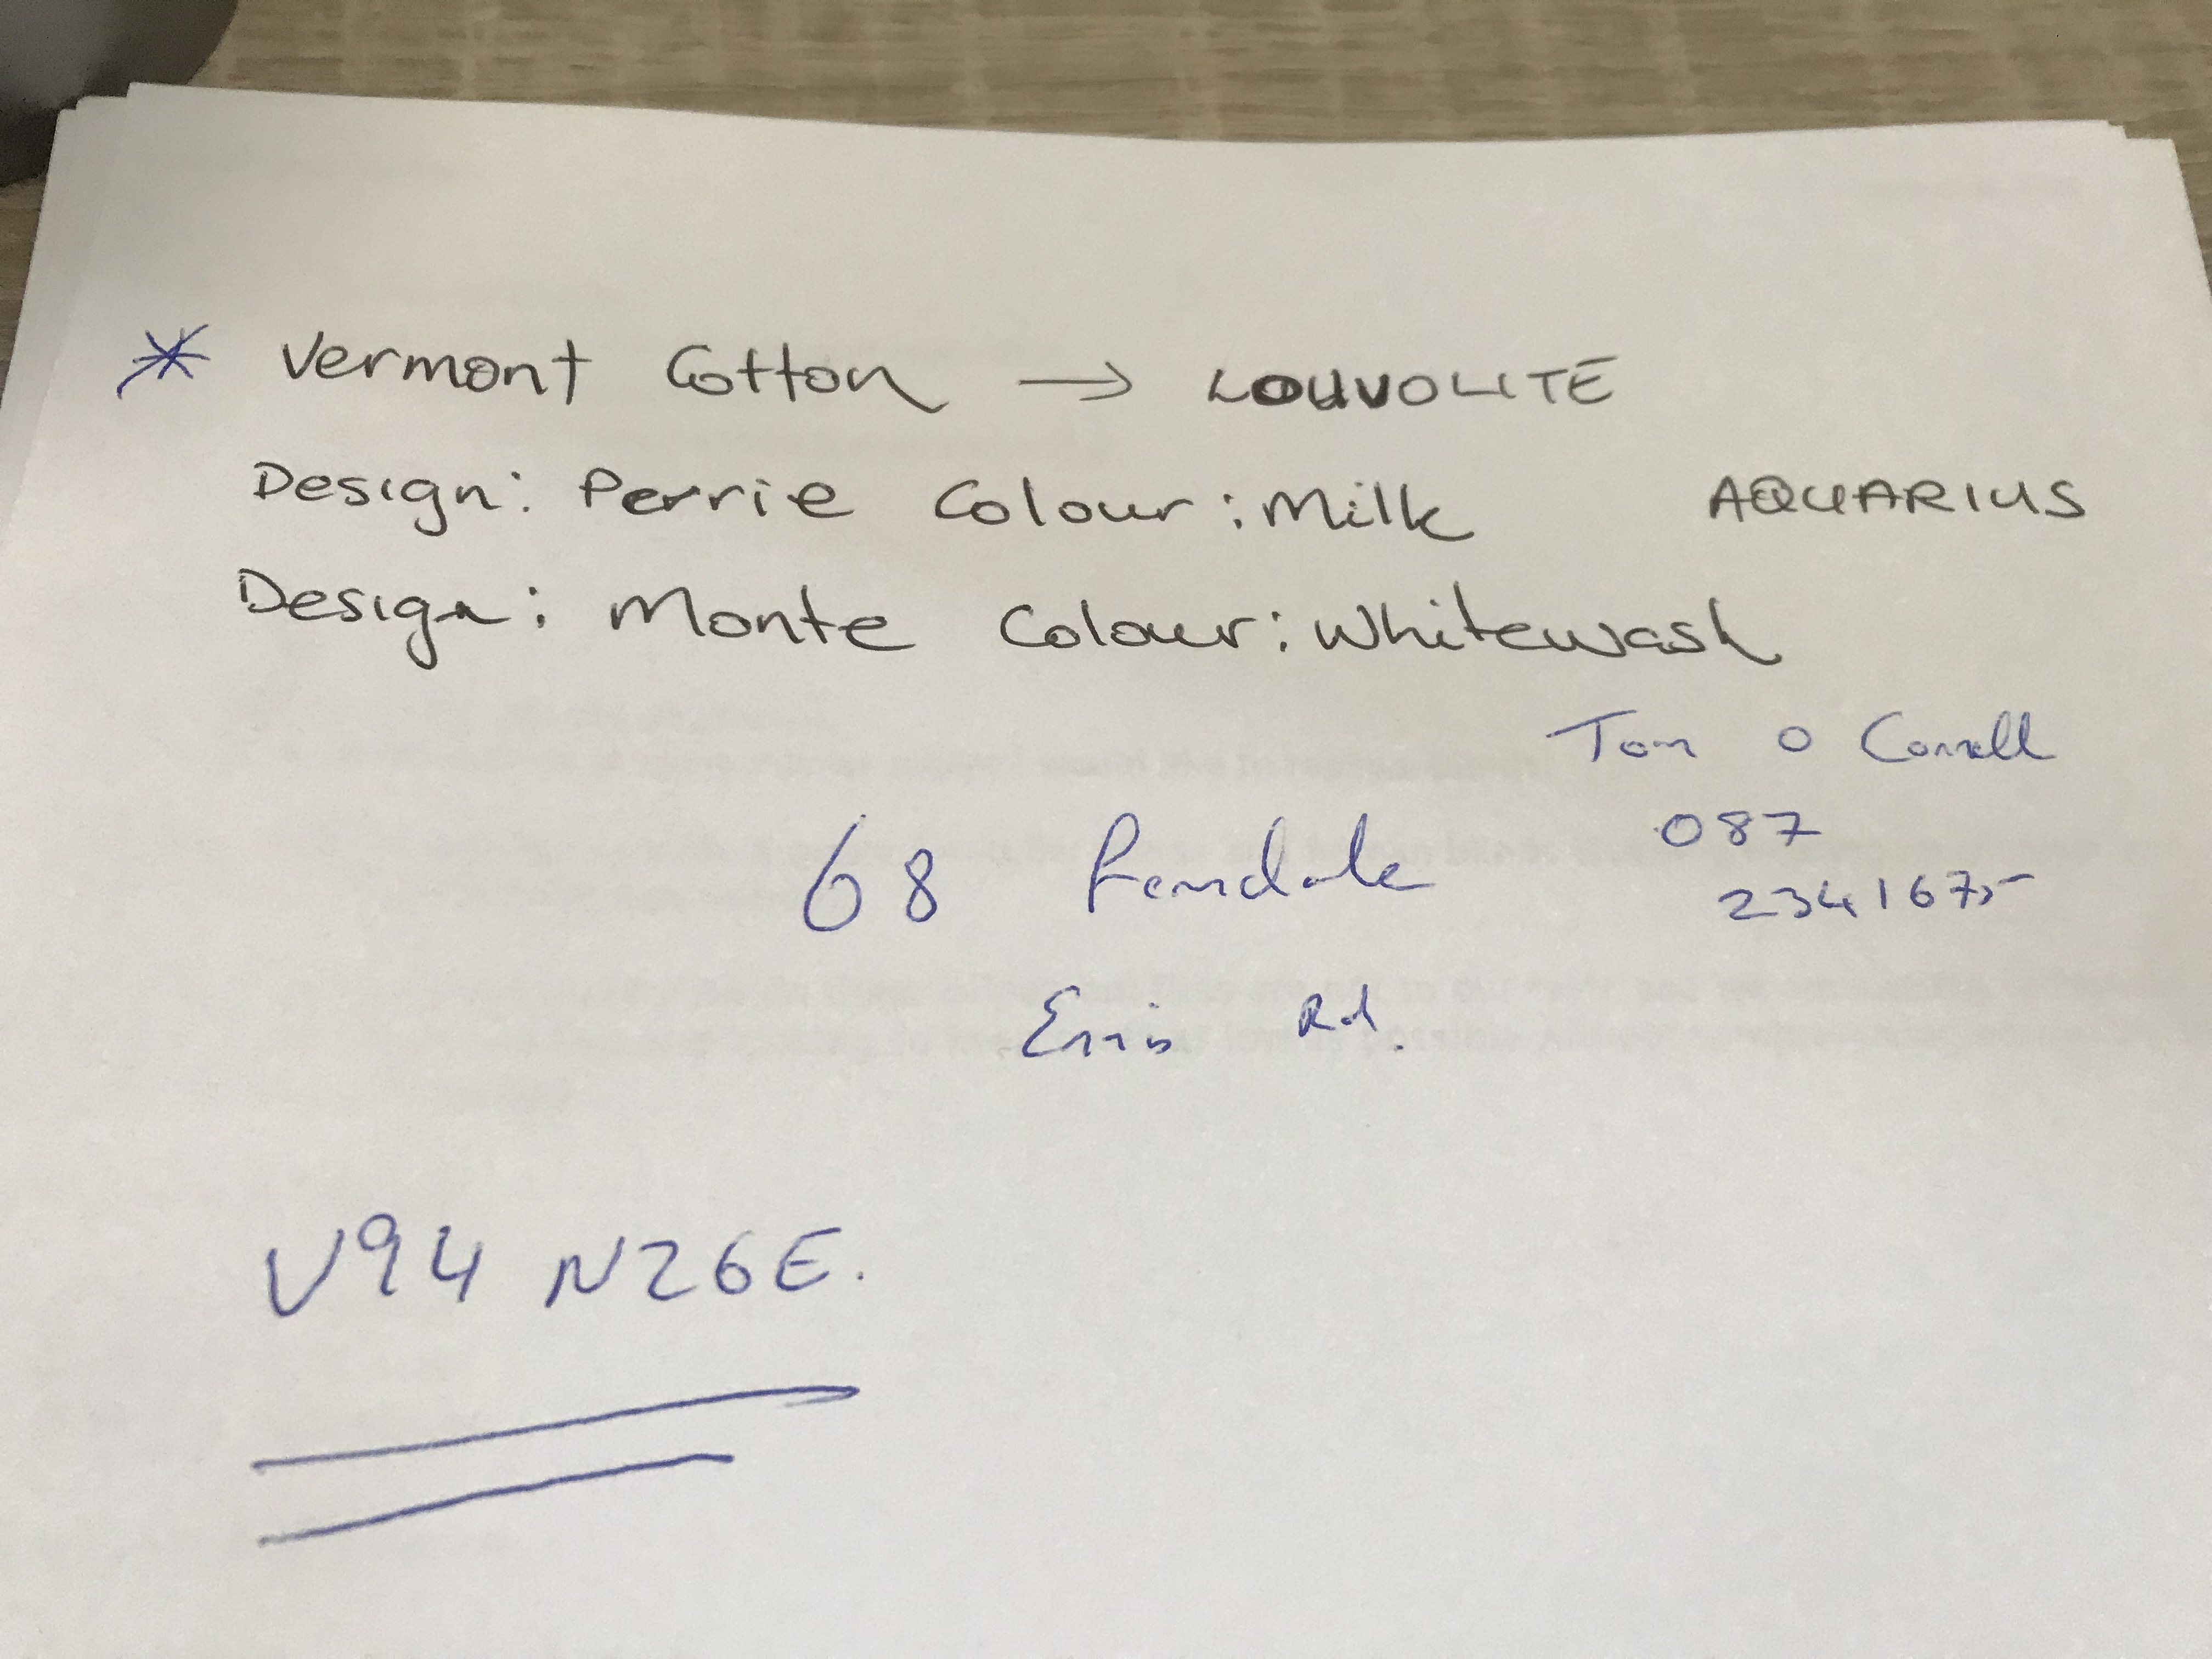 * Vermont Cotton → LOUVOLITE
Design: Perrie Colour: Milk AQUARIUS
Design: Monte Colour: Whitewash
Tom O Connell
087
2341675
68 Ferndale
Ennis Rd.
V94 N26E.